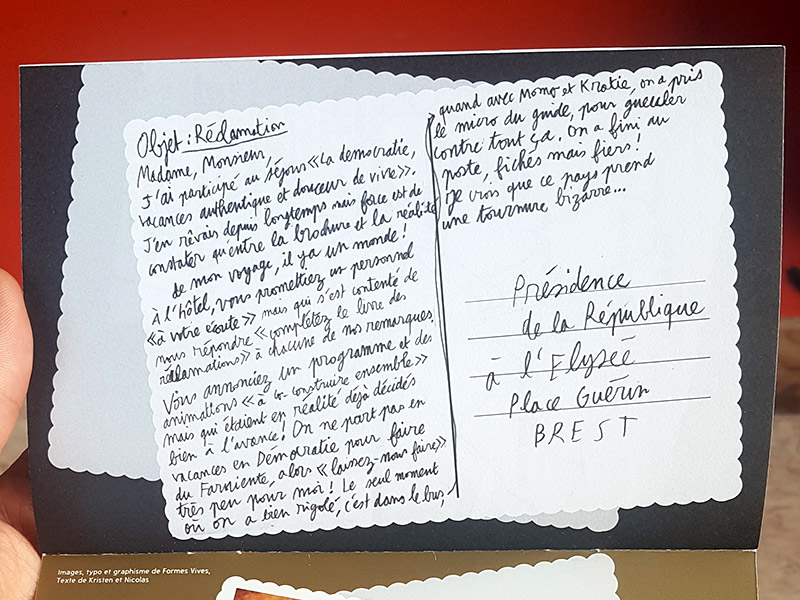 Objet : Réclamation
Madame, Monsieur
J'ai participé au séjour «La démocratie,
vacances authentique et douceur de vivre».
J'en rêvais depuis longtemps mais force est de
constater qu'entre la brochure et la réalité
de mon voyage, il y a un monde !
À l'hôtel, vous promettiez un personnel
«à votre écoute» mais qui s'est contenté de
nous répondre «complétez le livre des
réclamations» à chacune de nos remarques.
Vous annonciez un programme et des
animations «à co-construire ensemble»
mais qui étaient en réalité déjà décidés
bien à l'avance ! On ne part pas en
vacances en Démocratie pour faire
du Farniente, alors «laissez-nous faire»
très peu pour moi ! Le seul moment
où on a bien rigolé, c'est dans le bus,
quand avec Momo et Kratie, on a pris
le micro du guide, pour gueuler
contre tout ça. On a fini au
poste, fichés mais fiers !
Je crois que ce pays prend
une tournure bizarre...
Présidence
de la République
à l'Elysée
Place Guérin
BREST
Images, typo et graphisme de Formes Vives,
Texte de Kristen et Nicolas